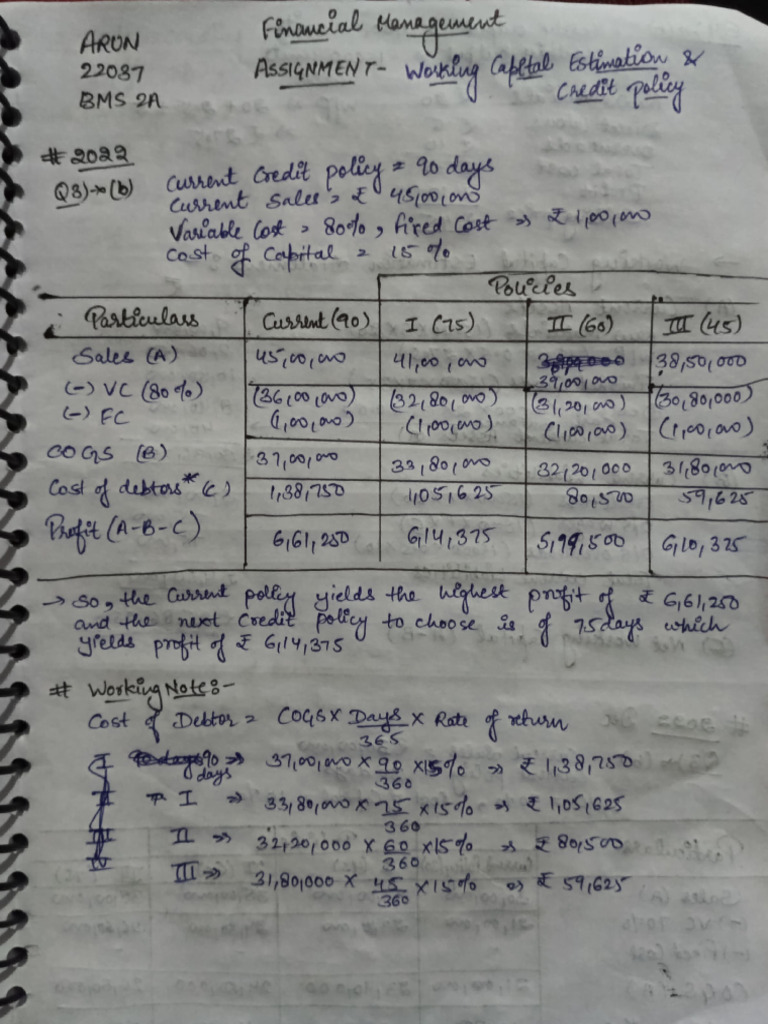 Financial Management
ARUN
22037
BMS 2A
ASSIGNMENT - Working Capital Estimation &
Credit Policy
# 2022
Q3) → (b)
Current Credit policy = 90 days
Current Sales = ₹ 45,00,000
Variable Cost = 80%, fixed Cost => ₹ 1,00,000
Cost of Capital = 15 %
Policies
Particulars Current (90) I (75) II (60) III (45)
Sales (A) 45,00,000 41,00,000 39,00,000 38,50,000
(-) VC (80%) (36,00,000) (32,80,000) (31,20,000) (30,80,000)
(-) FC (1,00,000) (1,00,000) (1,00,000) (1,00,000)
COGS (B) 37,00,000 33,80,000 32,20,000 31,80,000
Cost of debtors* (C) 1,38,750 1,05,625 80,500 59,625
Profit (A-B-C) 6,61,250 6,14,375 5,99,500 6,10,375
→ So, the Current policy yields the highest profit of ₹ 6,61,250
and the next Credit policy to choose is of 75 days which
yields profit of ₹ 6,14,375
# Working Note:-
Cost of Debtor = COGS × Days/365 × Rate of return
90 days => 37,00,000 × 90/360 × 15% => ₹ 1,38,750
I => 33,80,000 × 75/360 × 15% => ₹ 1,05,625
II => 32,20,000 × 60/360 × 15% => ₹ 80,500
III => 31,80,000 × 45/360 × 15% => ₹ 59,625